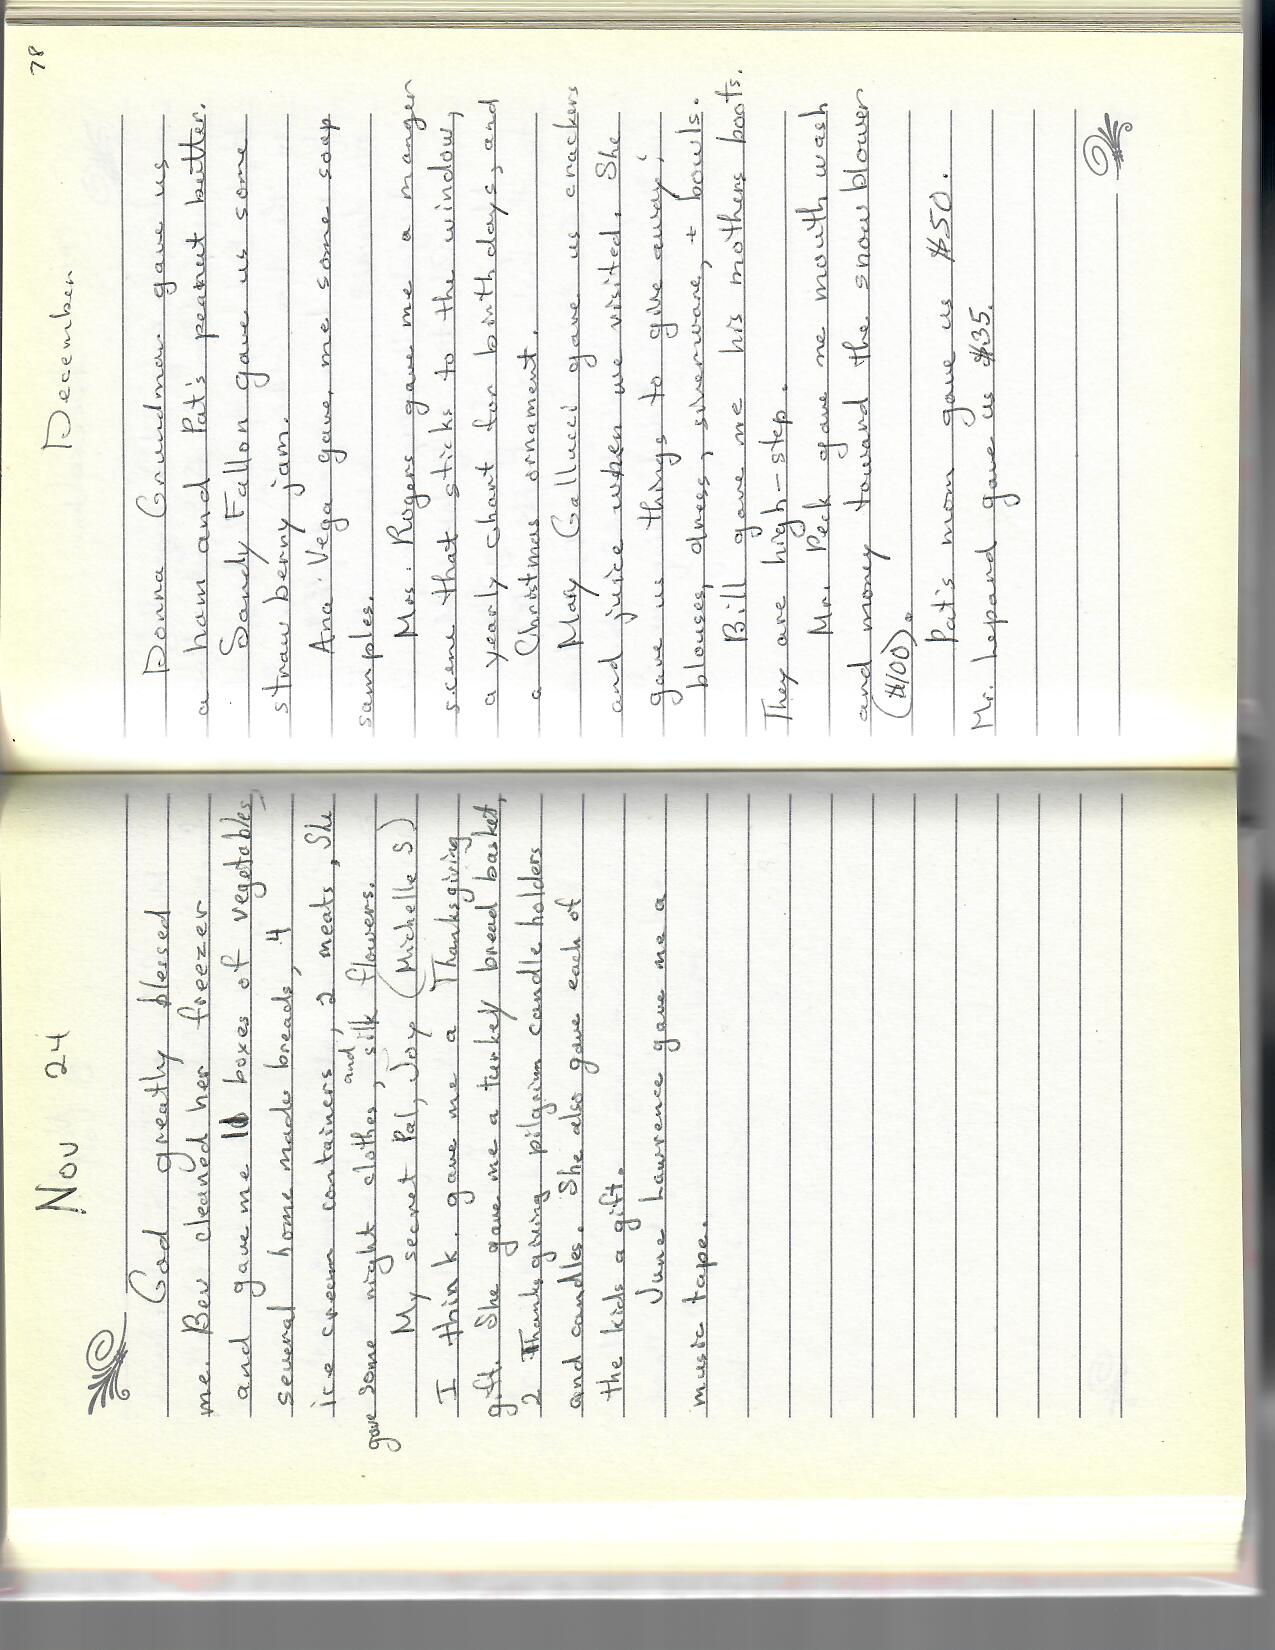 Nov 24
God greatly blessed
me. Bev cleaned her freezer
and gave me 10 boxes of vegetables,
several home made breads, 4
ice cream containers, 2 meats, She
gave some night clothes, and silk flowers.
My secret Pal, Joy (Michelle S)
I think. gave me a Thanksgiving
gift. She gave me a turkey bread basket,
2 Thanksgiving pilgrim candle holders
and candles. She also gave each of
the kids a gift.
June Lawrence gave me a
music tape.
78
December
Donna Grundman gave us
a ham and Pat's peanut butter.
Sandy Fallon gave us some
straw berry jam.
Ana Vega gave me some soap
samples.
Mrs. Rogers gave me a manger
scene that sticks to the window,
a yearly chart for birthdays, and
a Christmas ornament.
Mary Gallucci gave us crackers
and juice when we visited. She
gave us things to give away;
blouses, dress, silverware, + bowls.
Bill gave me his mothers boots.
They are high-step.
Mr. Peck gave me mouth wash
and money toward the snowblower
($100).
Pat's mom gave us $50.
Mr. Lepard gave us $35.